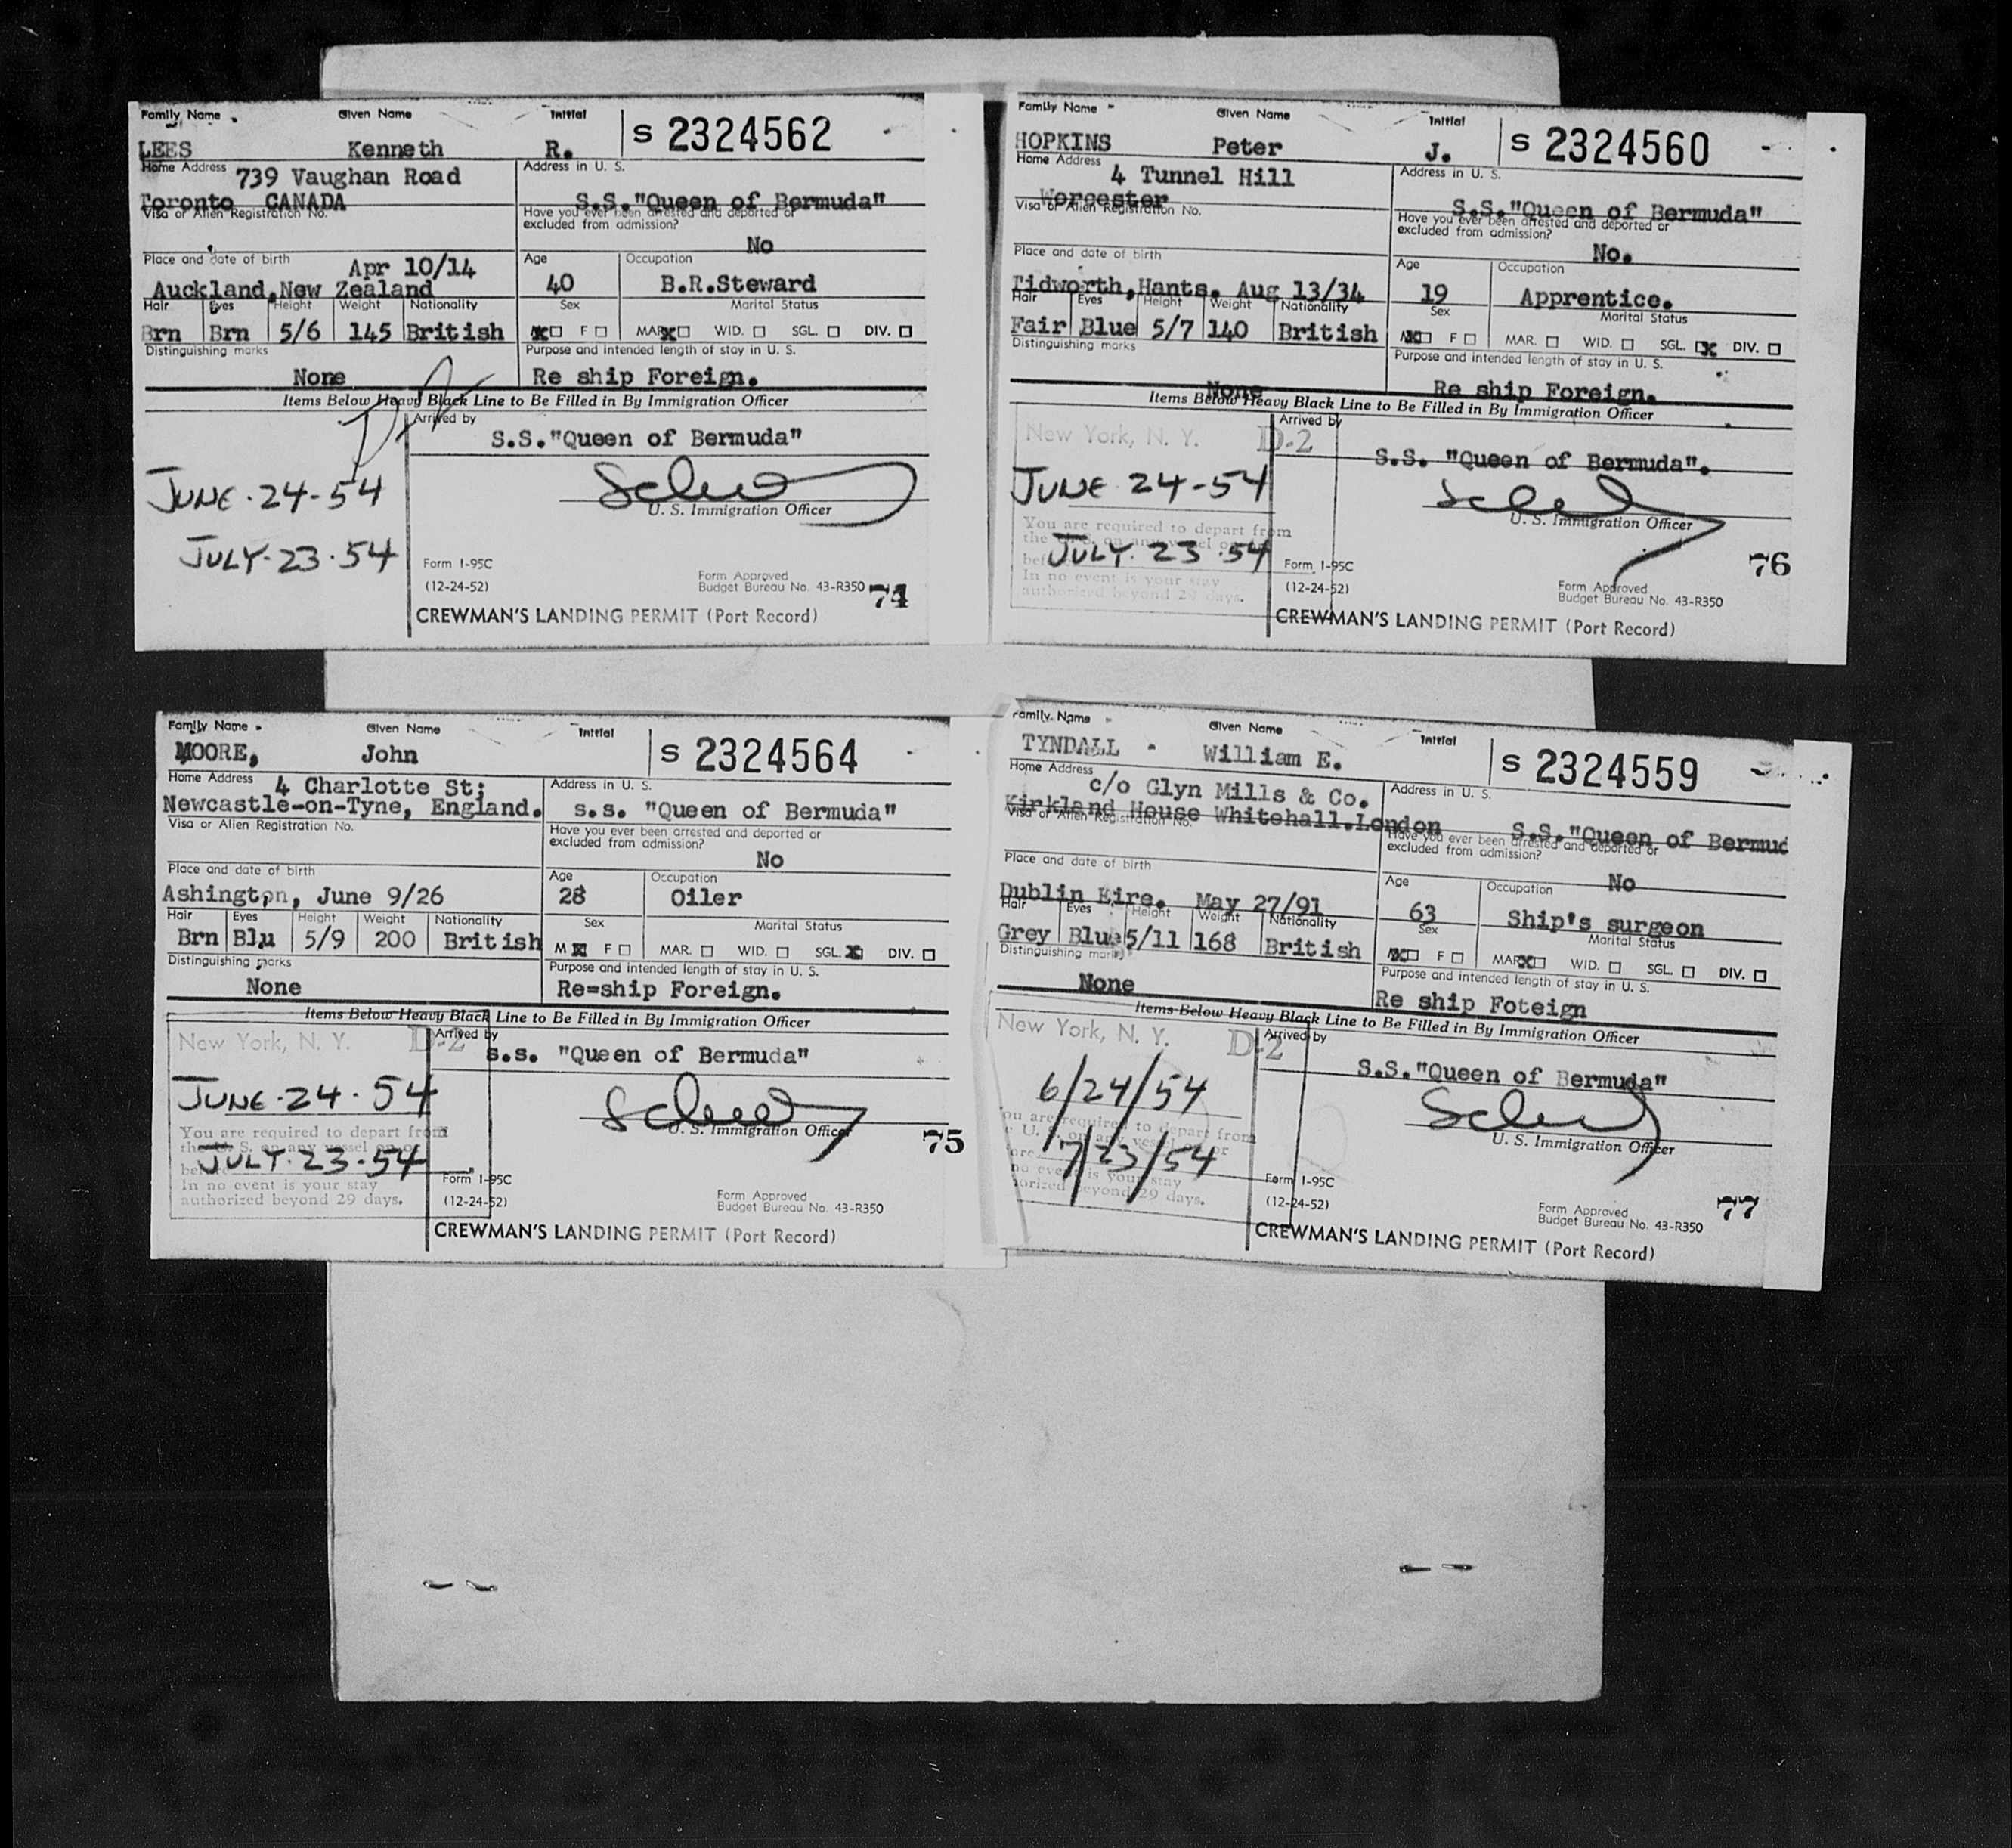 Family Name Given Name Initial
S 2324562
LEES Kenneth R.
Home Address 739 Vaughan Road
Address in U. S.
Toronto CANADA
S.S."Queen of Bermuda"
Visa or Alien Registration No.
Have you ever been arrested and deported or
excluded from admission?
No
Place and date of birth Apr 10/14
Age Occupation
Auckland,New Zealand
40 B.R.Steward
Hair Eyes Height Weight Nationality
Sex Marital Status
Brn Brn 5/6 145 British
X F MAR X WID. SGL. DIV.
Distinguishing marks
Purpose and intended length of stay in U. S.
None
Re ship Foreign.
Items Below Heavy Black Line to Be Filled in By Immigration Officer
Arrived by
S.S."Queen of Bermuda"
JUNE·24-54
U. S. Immigration Officer
JULY·23·54
Form I-95C
(12-24-52)
Form Approved
Budget Bureau No. 43-R350
74
CREWMAN'S LANDING PERMIT (Port Record)
Family Name Given Name Initial
S 2324560
HOPKINS Peter J.
Home Address
4 Tunnel Hill
Address in U. S.
Worcester
S.S."Queen of Bermuda"
Visa or Alien Registration No.
Have you ever been arrested and deported or
excluded from admission?
No.
Place and date of birth
Age Occupation
Tidworth,Hants. Aug 13/34
19 Apprentice.
Hair Eyes Height Weight Nationality
Sex Marital Status
Fair Blue 5/7 140 British
X F MAR. WID. SGL. X DIV.
Distinguishing marks
Purpose and intended length of stay in U. S.
None
Re ship Foreign.
Items Below Heavy Black Line to Be Filled in By Immigration Officer
New York, N. Y. D-2
Arrived by
S.S. "Queen of Bermuda".
JUNE 24-54
U. S. Immigration Officer
You are required to depart from
JULY·23·54
In no event is your stay
authorized beyond 29 days.
Form I-95C
(12-24-52)
Form Approved
Budget Bureau No. 43-R350
76
CREWMAN'S LANDING PERMIT (Port Record)
Family Name Given Name Initial
S 2324564
MOORE, John
Home Address 4 Charlotte St;
Address in U. S.
Newcastle-on-Tyne, England.
s.s. "Queen of Bermuda"
Visa or Alien Registration No.
Have you ever been arrested and deported or
excluded from admission?
No
Place and date of birth
Age Occupation
Ashington, June 9/26
28 Oiler
Hair Eyes Height Weight Nationality
Sex Marital Status
Brn Blu 5/9 200 British
M X F MAR. WID. SGL. X DIV.
Distinguishing marks
Purpose and intended length of stay in U. S.
None
Re=ship Foreign.
Items Below Heavy Black Line to Be Filled in By Immigration Officer
New York, N. Y. D-2
Arrived by
s.s. "Queen of Bermuda"
JUNE·24·54
U. S. Immigration Officer
You are required to depart from
JULY·23·54
In no event is your stay
authorized beyond 29 days.
75
Form I-95C
(12-24-52)
Form Approved
Budget Bureau No. 43-R350
CREWMAN'S LANDING PERMIT (Port Record)
Family Name Given Name Initial
S 2324559
TYNDALL William E.
Home Address
c/o Glyn Mills & Co.
Address in U. S.
Kirkland House Whitehall.London
S.S."Queen of Bermud
Visa or Alien Registration No.
Have you ever been arrested and deported or
excluded from admission?
No
Place and date of birth
Age Occupation
Dublin Eire. May 27/91
63 Ship's surgeon
Hair Eyes Height Weight Nationality
Sex Marital Status
Grey Blue 5/11 168 British
X F MAR X WID. SGL. DIV.
Distinguishing marks
Purpose and intended length of stay in U. S.
None
Re ship Foteign
Items Below Heavy Black Line to Be Filled in By Immigration Officer
New York, N. Y. D-2
Arrived by
S.S."Queen of Bermuda"
6/24/54
U. S. Immigration Officer
ou are required to depart from
7/23/54
no event is your stay
horized beyond 29 days.
Form I-95C
(12-24-52)
Form Approved
Budget Bureau No. 43-R350
77
CREWMAN'S LANDING PERMIT (Port Record)